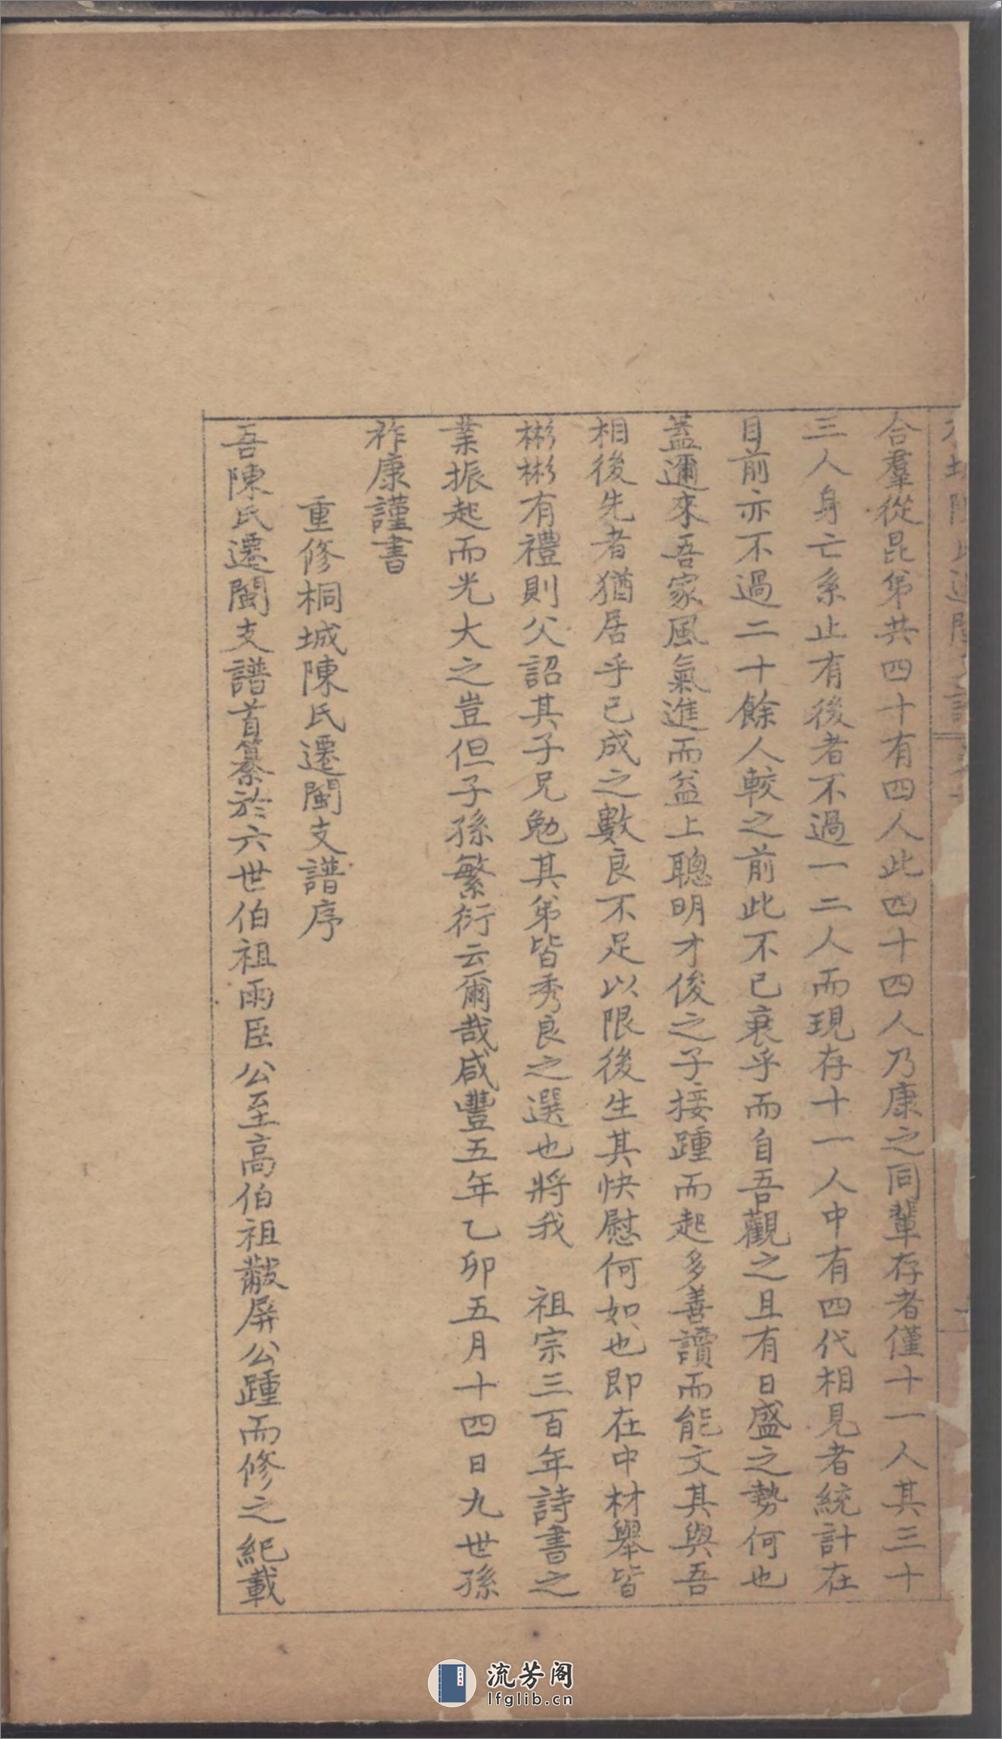 合羣從昆弟共四十有四人此四十四人乃康之同輩存者僅十一人其三十
三人身亡系止有後者不過一二人而現存十一人中有四代相見者統計在
目前亦不過二十餘人較之前此不已衰乎而自吾觀之且有日盛之勢何也
蓋邇來吾家風氣進而益上聰明才俊之子接踵而起多善讀而能文其與吾
相後先者猶居乎已成之數良不足以限後生其快慰何如也即在中材舉皆
彬彬有禮則父詔其子兄勉其弟皆秀良之選也將我 祖宗三百年詩書之
業振起而光大之豈但子孫繁衍云爾哉咸豐五年乙卯五月十四日九世孫
祚康謹書
重修桐城陳氏遷閩支譜序
吾陳氏遷閩支譜首纂於六世伯祖雨臣公至高伯祖黻屏公踵而修之紀載
流芳阁
lfglib.cn